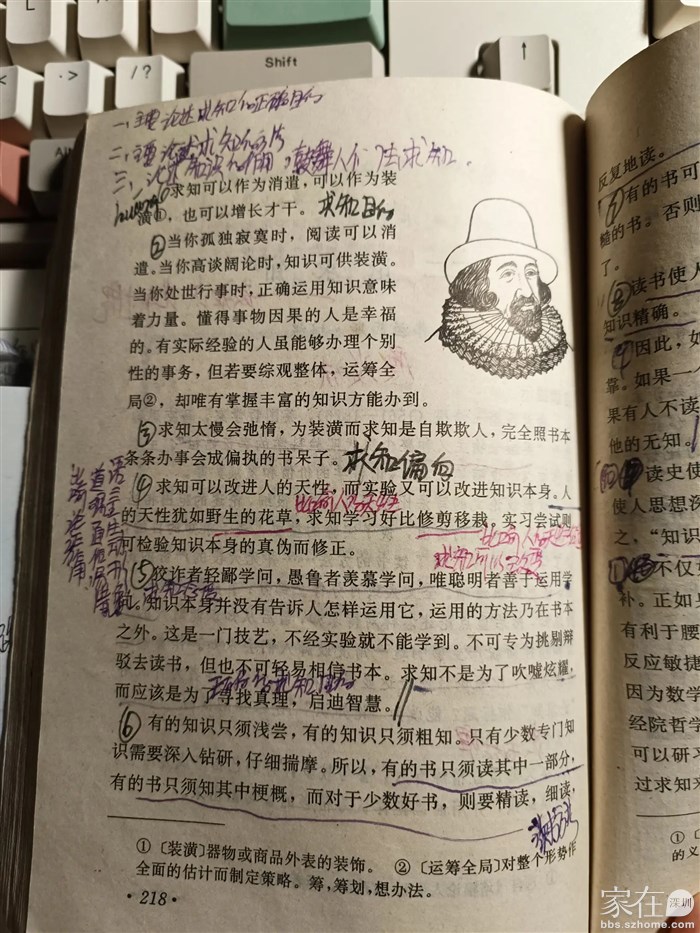 Shift
一、主要论述求知的正确目的
二、主要论述求知的方法
三、论述知识的作用,鼓舞人们去求知.
求知可以作为消遣，可以作为装
潢①，也可以增长才干。 求知目的
② 当你孤独寂寞时，阅读可以消
遣。当你高谈阔论时，知识可供装潢。
当你处世行事时，正确运用知识意味
着力量。懂得事物因果的人是幸福
的。有实际经验的人虽能够办理个别
性的事务，但若要综观整体，运筹全
局②，却唯有掌握丰富的知识方能办到。
③ 求知太慢会弛惰，为装潢而求知是自欺欺人，完全照书本
条条办事会成偏执的书呆子。 求知偏向
④ 求知可以改进人的天性，而实验又可以改进知识本身。人
的天性犹如野生的花草，求知学习好比修剪移栽。实习尝试则
可检验知识本身的真伪而修正。
⑤ 狡诈者轻鄙学问，愚鲁者羡慕学问，唯聪明者善于运用学
问。知识本身并没有告诉人怎样运用它，运用的方法乃在书本
之外。这是一门技艺，不经实验就不能学到。不可专为挑剔辩
驳去读书，但也不可轻易相信书本。求知不是为了吹嘘炫耀，
而应该是为了寻找真理，启迪智慧。
⑥ 有的知识只须浅尝，有的知识只须粗知。只有少数专门知
识需要深入钻研，仔细揣摩。所以，有的书只须读其中一部分，
有的书只须知其中梗概，而对于少数好书，则要精读，细读，
① 〔装潢〕器物或商品外表的装饰。 ② 〔运筹全局〕对整个形势作
全面的估计而制定策略。筹，筹划，想办法。
·218·
反复地读。
有的书可
糙的书。否则
了。
读书使人
知识精确。
因此，如
靠。如果一
果有人不读
他的无知。
读史使
使人思想深
之，“知识
不仅
补。正如身
有利于腰
反应敏捷
因为数学
经院哲学
可以研习
过求知来
的义
家在深圳
bbs.szhome.com